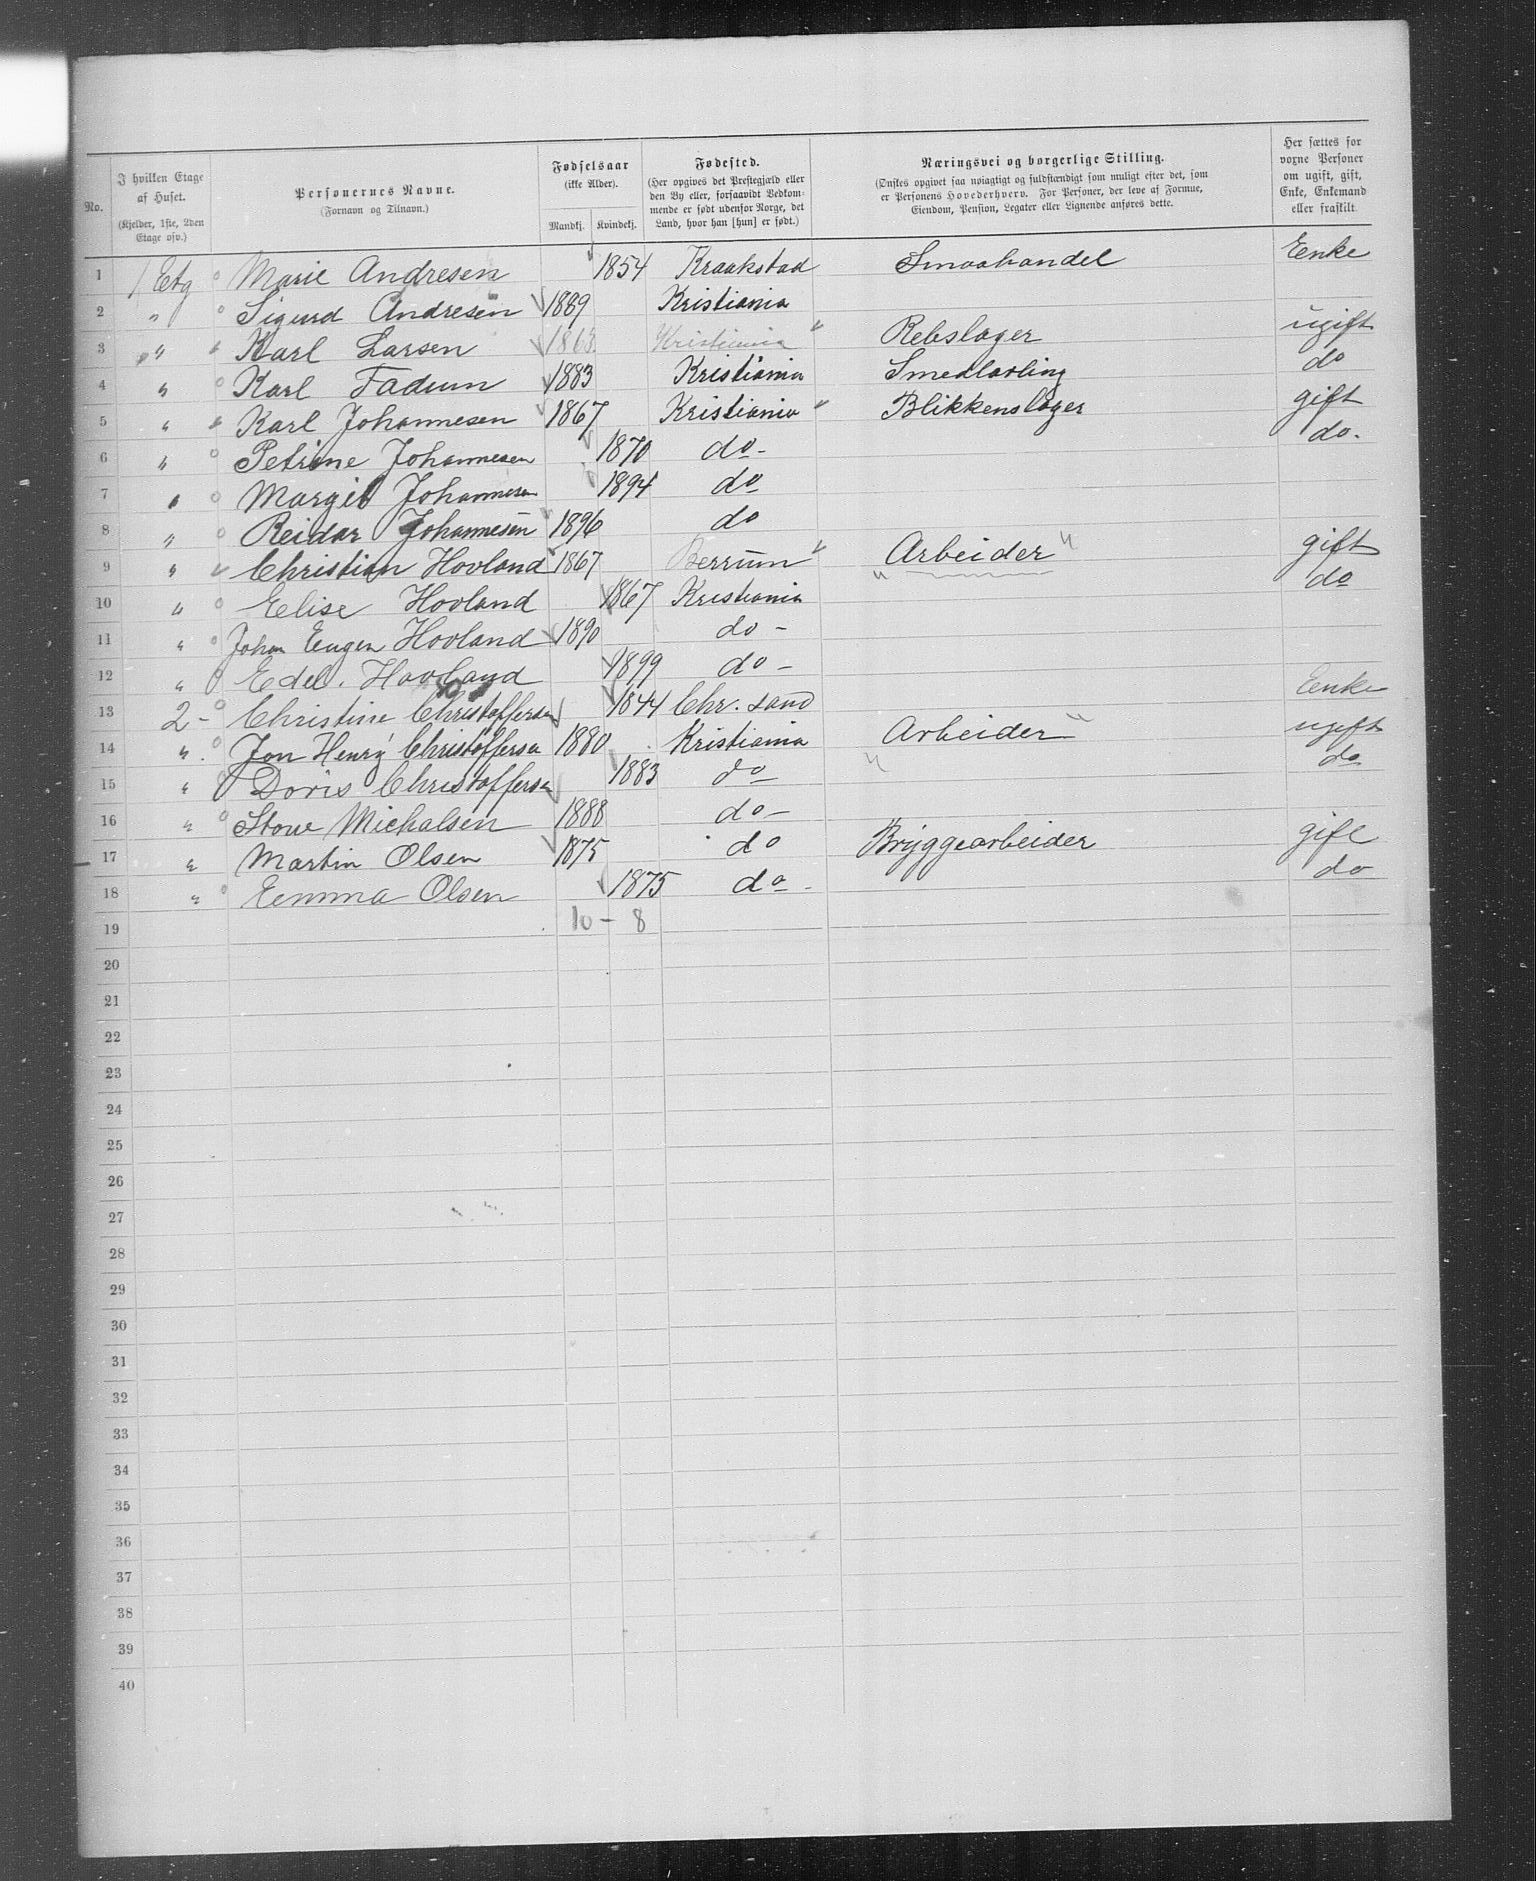 No.
I hvilken Etage af Huset. (Kjelder, 1ste, 2den Etage osv.)
Personernes Navne. (Fornavn og Tilnavn.)
Fødselsaar (ikke Alder). Mandkj. Kvindekj.
Fødested. (Her opgives det Prestegjæld eller den By eller, forsaavidt Vedkommende er født udenfor Norge, det Land, hvor han [hun] er født.)
Næringsvei og borgerlige Stilling. (Ønskes opgivet saa nøiagtigt og fuldstændigt som muligt efter det, som er Personens Hovederhverv. For Personer, der leve af Formue, Eiendom, Pension, Legater eller Lignende anføres dette.
Her sættes for voxne Personer om ugift, gift, Enke, Enkemand eller fraskilt.
1 1 Etg Marie Andresen 1854 Kraakstad Smaahandel Eenke
2 " Sigurd Andresen 1889 Kristiania
3 " Karl Larsen 1863 Kristiania " Rebslager ugift
4 " Karl Fadum 1883 Kristiania Smedlærling do
5 " Karl Johannesen 1867 Kristiania " Blikkenslager gift
6 " Petrine Johannesen 1870 do - do.
7 " Margit Johannesen 1894 do
8 " Reidar Johannesen 1896 do
9 " Christian Hovland 1867 Berrum " Arbeider " gift
10 " Eelise Hovland 1867 Kristiania " do
11 " Johan Eugen Hovland 1890 do -
12 " Edel. Hovland 1899 do -
13 2 - Christine Christoffersen 1844 Chr. sand Eenke
14 " Jon Henry Christoffersen 1880 Kristiania Arbeider " ugift
15 " Doris Christoffersen 1883 do " do
16 " Michalsen 1888 do -
17 " Martin Olsen 1875 do Bryggearbeider gift
18 " Eemma Olsen 1875 do - do
19 10 - 8
20
21
22
23
24
25
26
27
28
29
30
31
32
33
34
35
36
37
38
39
40